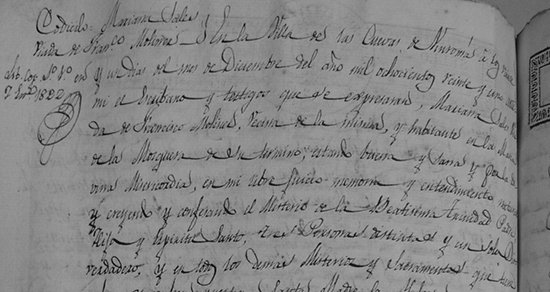 Codicilo. Mariana Sales
Viuda de Franco Molinos
En la Villa de las Cuevas de Vinromá a los
y un dias del mes de Diciembre del año mil ochocientos veinte y uno
mi el Escribano y testigos que se expresaran, Mariana Sales
da de Francisco Molinos, vecina de la misma, y habitante en la
de la Morquera de su termino; estando buena y sana por la
vina Misericordia, en mi libre juicio memoria y entendimiento
y creyendo y confesando el Misterio de la Beatisima Trinidad Padre
Hijo y Espiritu Santo, tres Personas distintas y un solo Dios
verdadero, y en todos los demás Misterios y Sacramentos que
Santa Madre la